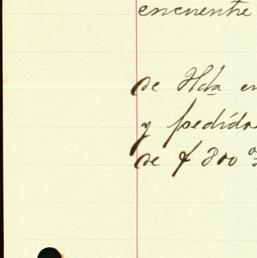 encuentre
de Hda en
y pedido
de $ 300